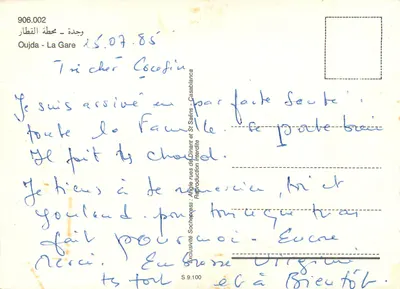 906.002
وجدة - محطة القطار
Oujda - La Gare
25.07.85
Très cher Cousin
Je suis arrivé en parfaite santé
toute la famille se porte bien
Il fait très chaud.
Je tiens à te remercier, toi et
pour tout ce que tu as
fait pour moi. Encore
Merci. Embrasse Virginie
très fort et à Bientôt.
Exclusivité Sochepress : Angle rues de Dinant et St Saëns - Casablanca
Reproduction Interdite
S 9.100